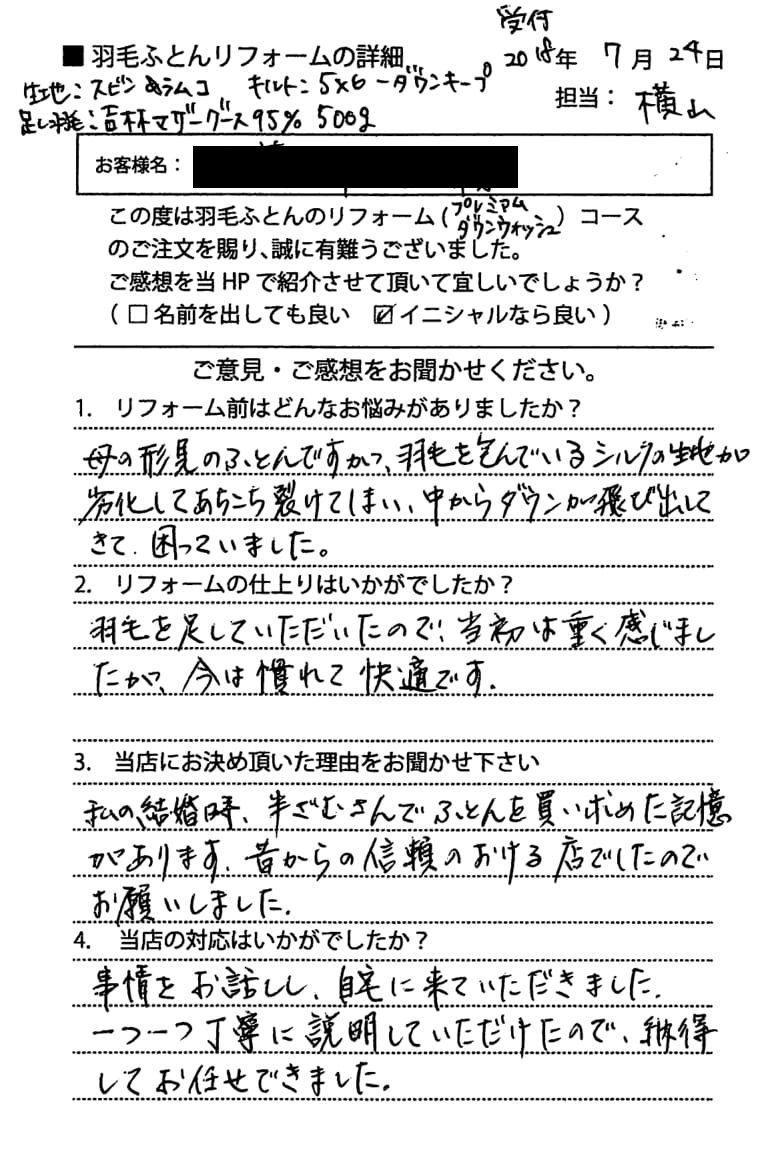 受付
■ 羽毛ふとんリフォームの詳細 2018年 7月24日
生地：スビンaラムコ キルト：5×6-ダウンキープ
担当：横山
足し羽毛：吉林マザーグース95% 500g
お客様名：
この度は羽毛ふとんのリフォーム（プレミアムダウンウォッシュ）コース
のご注文を賜り、誠に有難うございました。
ご感想を当HPで紹介させて頂いて宜しいでしょうか？
（□名前を出しても良い ☑イニシャルなら良い）
ご意見・ご感想をお聞かせください。
1. リフォーム前はどんなお悩みがありましたか？
母の形見のふとんですが、羽毛を包んでいるシルクの生地が
劣化してあちこち裂けてしまい、中からダウンが飛び出して
きて、困っていました。
2. リフォームの仕上りはいかがでしたか？
羽毛を足していただいたので、当初は重く感じまし
たが、今は慣れて快適です。
3. 当店にお決め頂いた理由をお聞かせ下さい
私の結婚時、半ざむさんでふとんを買い求めた記憶
があります。昔からの信頼のおける店でしたので
お願いしました。
4. 当店の対応はいかがでしたか？
事情をお話しし、自宅に来ていただきました。
一つ一つ丁寧に説明していただけたので、納得
してお任せできました。